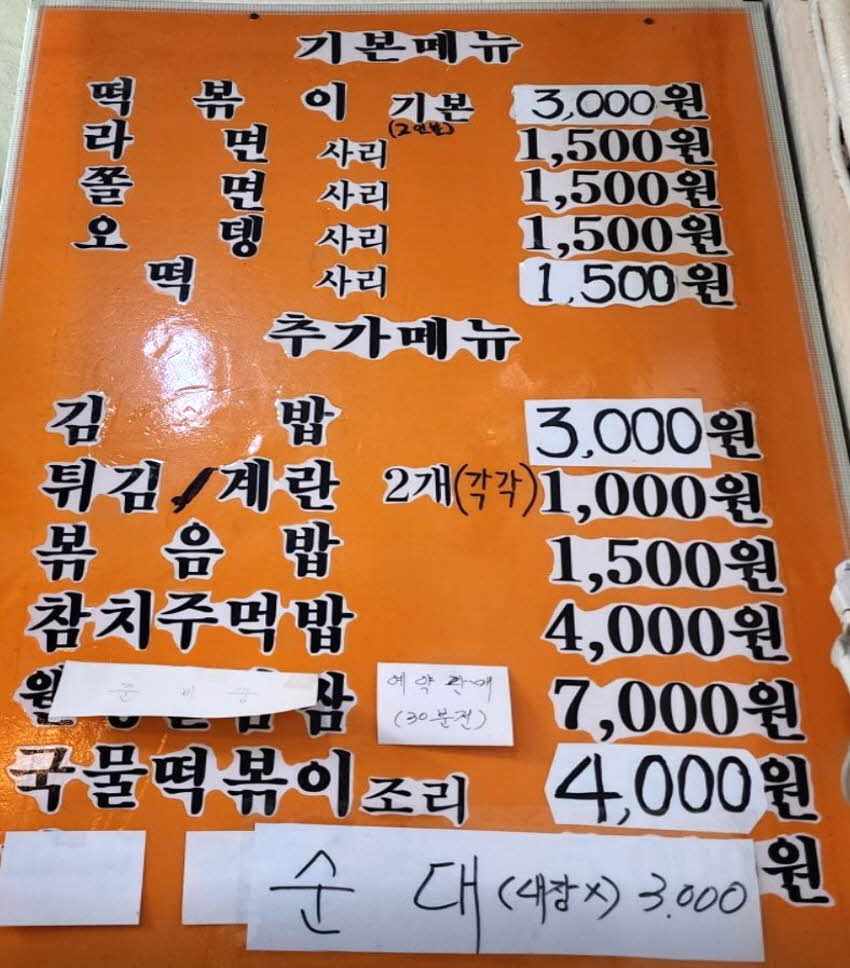 기본메뉴
떡볶이 기본 3,000원
(2인분)
라면 사리 1,500원
쫄면 사리 1,500원
오뎅 사리 1,500원
떡 사리 1,500원
추가메뉴
김밥 3,000원
튀김/계란 2개(각각) 1,000원
볶음밥 1,500원
참치주먹밥 4,000원
준비중 예약판매 7,000원
(30분전)
국물떡볶이 조리 4,000원
원
순대 (내장x) 3.000